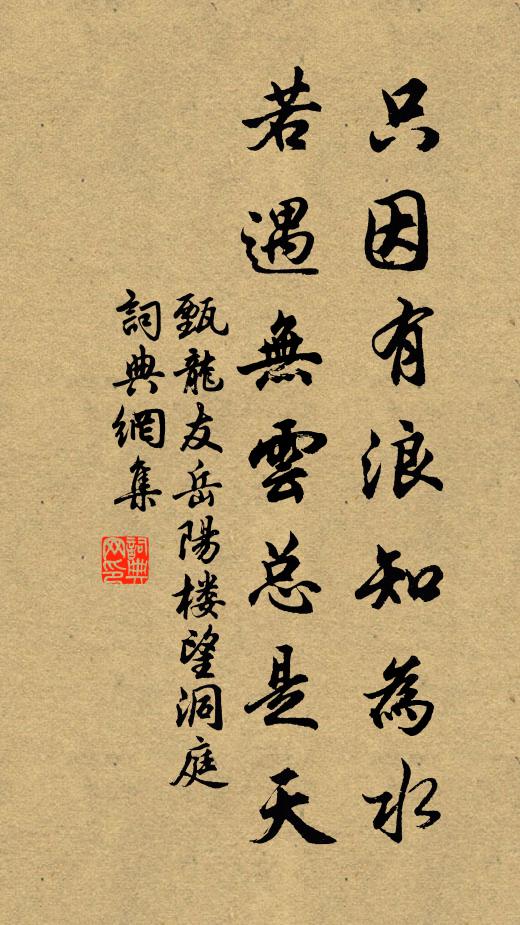 只因有浪知為水
若遇無雲总是天
甄龍友岳陽楼望洞庭
詞典網集
詞典网印